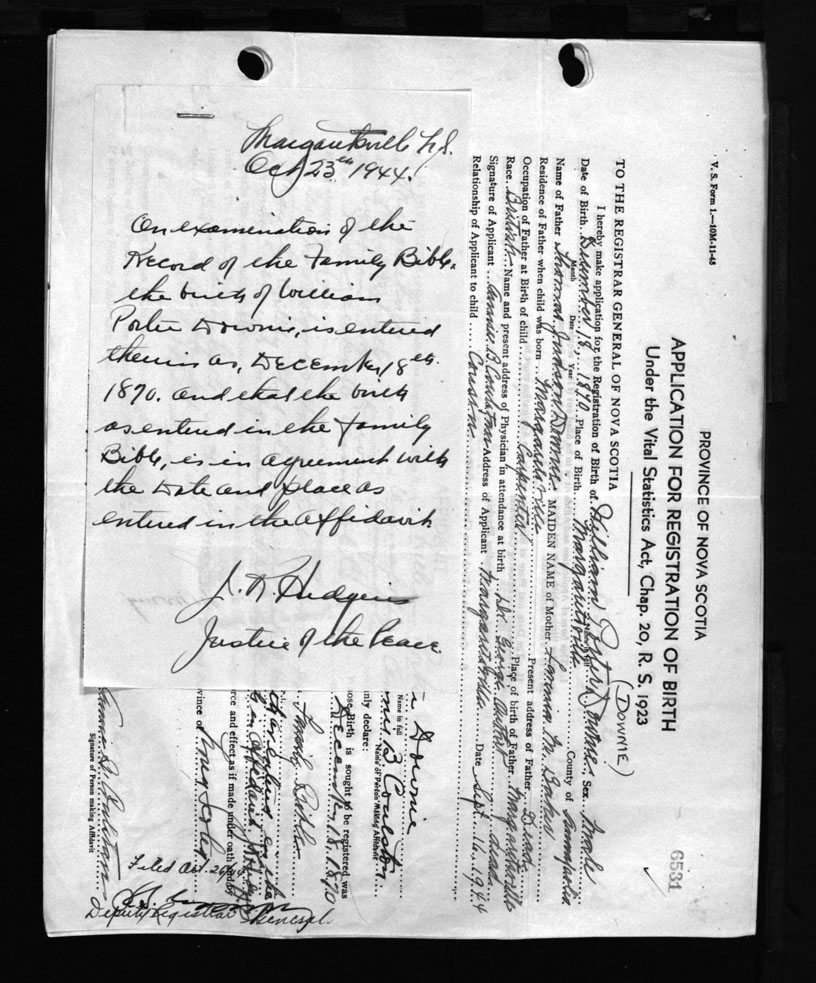 Margaretsville N.S.
Oct 23rd 1944.
On examination of the
Record of the Family Bible,
the birth of William
Porter Downie, is entered
therein as, December 18th
1870. and that the birth
as entered in the family
Bible, is in agreement with
the Date and place as
entered in the Affidavit
Justice of the Peace
V. S. Form 1.—10M-11-43
PROVINCE OF NOVA SCOTIA
APPLICATION FOR REGISTRATION OF BIRTH
Under the Vital Statistics Act, Chap. 20, R. S. 1923
6531
(DOWNIE)
TO THE REGISTRAR GENERAL OF NOVA SCOTIA
I hereby make application for the Registration of Birth of William Porter Downie, Sex Male
Date of Birth December 18, 1870 Place of Birth Margaretsville County of Annapolis
Month Date Year
Name of Father Judson Downie MAIDEN NAME of Mother M.
Residence of Father when child was born Margaretsville Present address of Father Dead
Occupation of Father at Birth of child Carpenter Place of birth of Father Margaretsville
Race British Name and present address of Physician in attendance at birth Dr. George dead
Signature of Applicant Annie B Coulston Address of Applicant Margaretsville Date Sept. 16, 1944
Relationship of Applicant to child Cousin
Downie
B Coulston
Name in full
Name of Person Making Affidavit
nly declare:
ose Birth is sought to be registered was
December 18, 1870
Family Bible
rce and effect as if made under oath and by
vince of
Annie B. Coulston
Signature of Person making Affidavit
Filed Oct. 26
Deputy Registrar General.